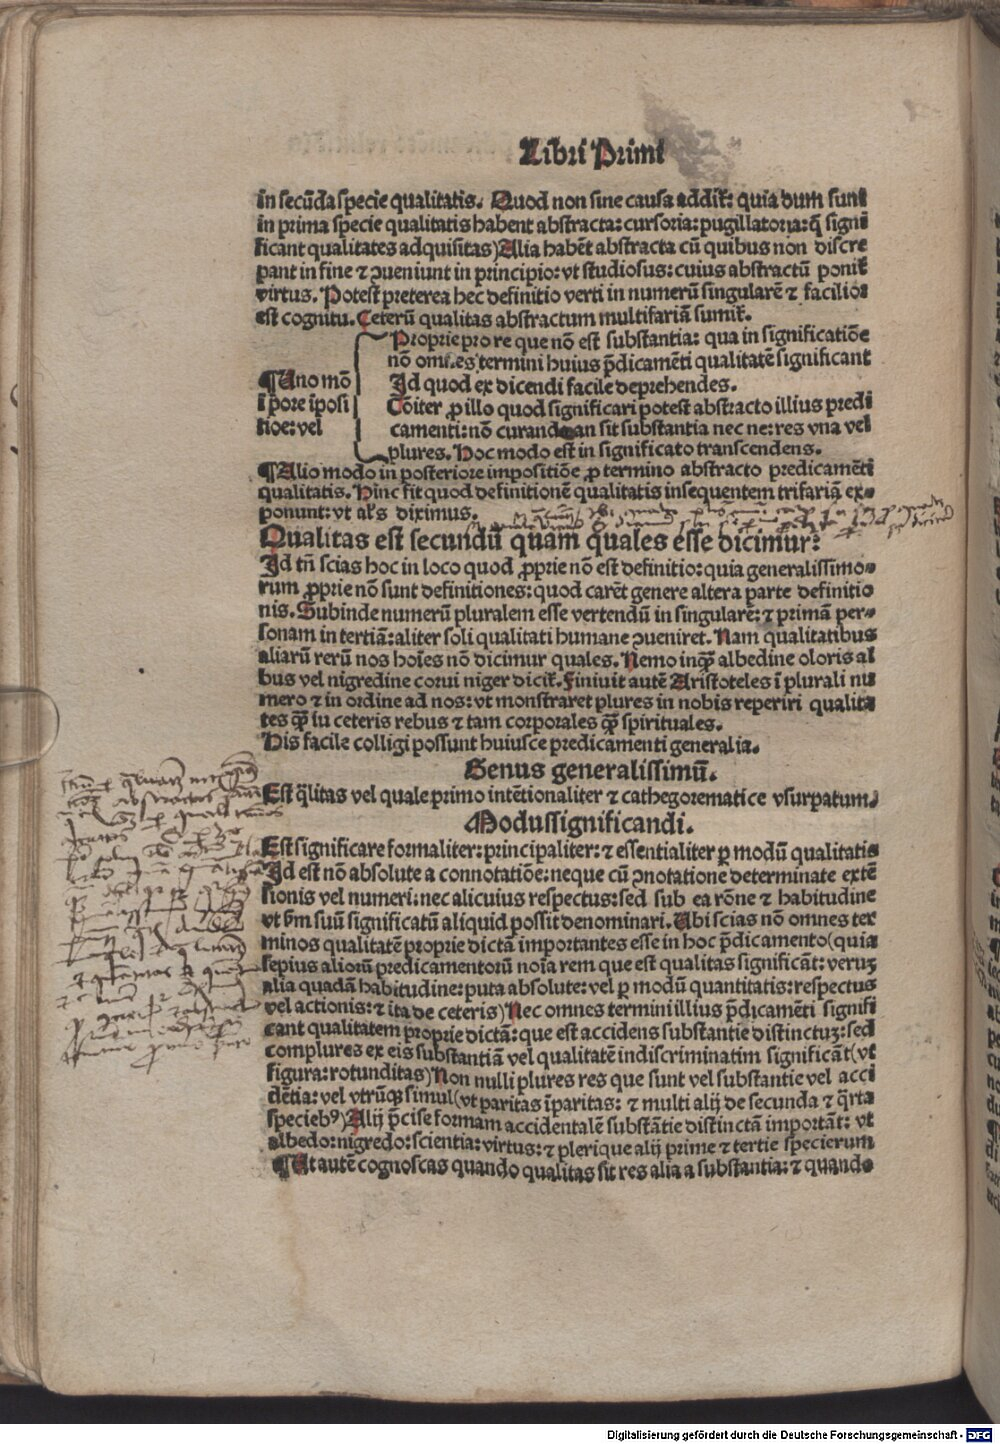 Libri Primi
in secūda specie qualitatis. Quod non sine causa addit̄: quia dum sunt
in prima specie qualitatis habent abstracta: cursoria: pugillatoria: q̄ signi
ficant qualitates adquisitas) Alia habēt abstracta cū quibus non discre
pant in fine ⁊ ꝯueniunt in principio: vt studiosus: cuius abstractū ponit̄
virtus. Potest preterea hec definitio verti in numerū singularē ⁊ facilior
est cognitu. Ceterū qualitas abstractum multifariā sumit̄.
Proprie pro re que nō est substantia: qua in significatiōe
nō omnes termini huius p̄dicamēti qualitatē significant
¶ Uno mō
Id quod ex dicendi facile deprehendes.
ī pore īposi
Cōiter ꝓ illo quod significari potest abstracto illius predi
tioe: vel
camenti: nō curando an sit substantia nec ne: res vna vel
plures. Hoc modo est in significato transcendens.
¶ Alio modo in posteriore impositiōe ꝓ termino abstracto predicamēti
qualitatis. Hinc fit quod definitionē qualitatis insequentem trifariā ex⸗
ponunt: vt al's diximus.
Qualitas est secundū quam quales esse dicimur:
Id tn̄ scias hoc in loco quod ꝓprie nō est definitio: quia generalissimo⸗
rum ꝓprie nō sunt definitiones: quod carēt genere altera parte definitio
nis. Subinde numerū pluralem esse vertendū in singularē: ⁊ primā per⸗
sonam in tertiā: aliter soli qualitati humane ꝯueniret. Nam qualitatibus
aliarū rerū nos hoīes nō dicimur quales. Nemo inqꝫ albedine oloris al
bus vel nigredine corui niger dicit̄. Finiuit autē Aristoteles ī plurali nu
mero ⁊ in ordine ad nos: vt monstraret plures in nobis reperiri qualita
tes qꝫ̄ iu ceteris rebus ⁊ tam corporales qꝫ̄ spirituales.
His facile colligi possunt huiusce predicamenti generalia.
Genus generalissimū.
Est q̄litas vel quale primo intētionaliter ⁊ cathegorematice vsurpatum.
Modussignificandi.
Est significare formaliter: principaliter: ⁊ essentialiter ꝑ modū qualitatis
Id est nō absolute a connotatiōe: neque cū ꝯnotatione determinate extē
sionis vel numeri: nec alicuius respectus: sed sub ea rōne ⁊ habitudine
vt ẜm suū significatū aliquid possit denominari. Ubi scias nō omnes ter
minos qualitatē proprie dictā importantes esse in hoc p̄dicamento (quia
sepius aliorū predicamentorū noīa rem que est qualitas significāt: veruꝫ
alia quadā habitudine: puta absolute: vel ꝑ modū quantitatis: respectus
vel actionis: ⁊ ita de ceteris) Nec omnes termini illius p̄dicamēti signifi
cant qualitatem proprie dictā: que est accidens substantie distinctuꝫ: sed
complures ex eis substantiā vel qualitatē indiscriminatim significāt (vt
figura: rotunditas) Non nulli plures res que sunt vel substantie vel acci
dētia: vel vtrūqꝫ simul (vt paritas īparitas: ⁊ multi alij de secunda ⁊ q̄rta
specieb⁹) Alij p̄cise formam accidentalē substātie distinctā importāt: vt
albedo: nigredo: scientia: virtus: ⁊ plerique alij prime ⁊ tertie specierum
¶ At autē cognoscas quando qualitas sit res alia a substantia: ⁊ quando
Digitalisierung gefördert durch die Deutsche Forschungsgemeinschaft - DFG